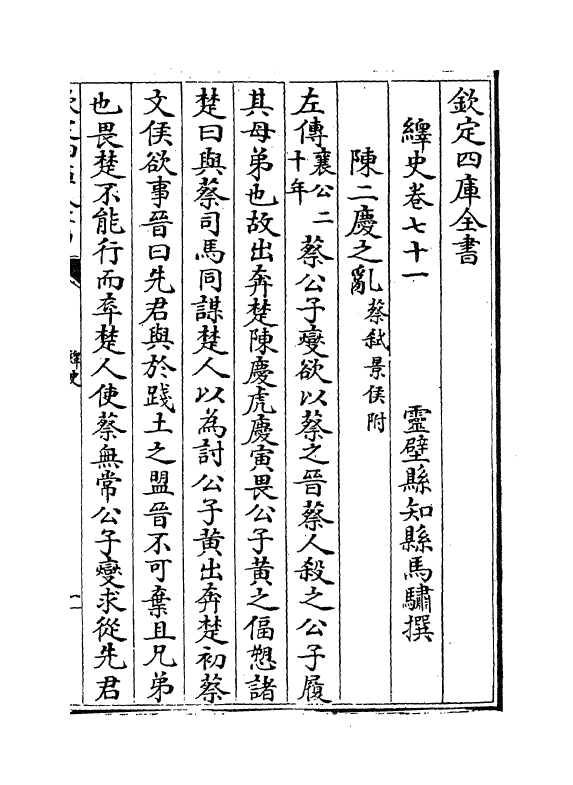 欽定四庫全書
繹史卷七十一　　　靈壁縣知縣馬驌撰
陳二慶之亂蔡弑景侯附
左傳襄公二十年蔡公子燮欲以蔡之晉蔡人殺之公子履
其母弟也故出奔楚陳慶虎慶寅畏公子黄之偪愬諸
楚曰與蔡司馬同謀楚人以為討公子黄出奔楚初蔡
文侯欲事晉曰先君與於踐土之盟晉不可棄且兄弟
也畏楚不能行而卒楚人使蔡無常公子燮求從先君
繹史
一